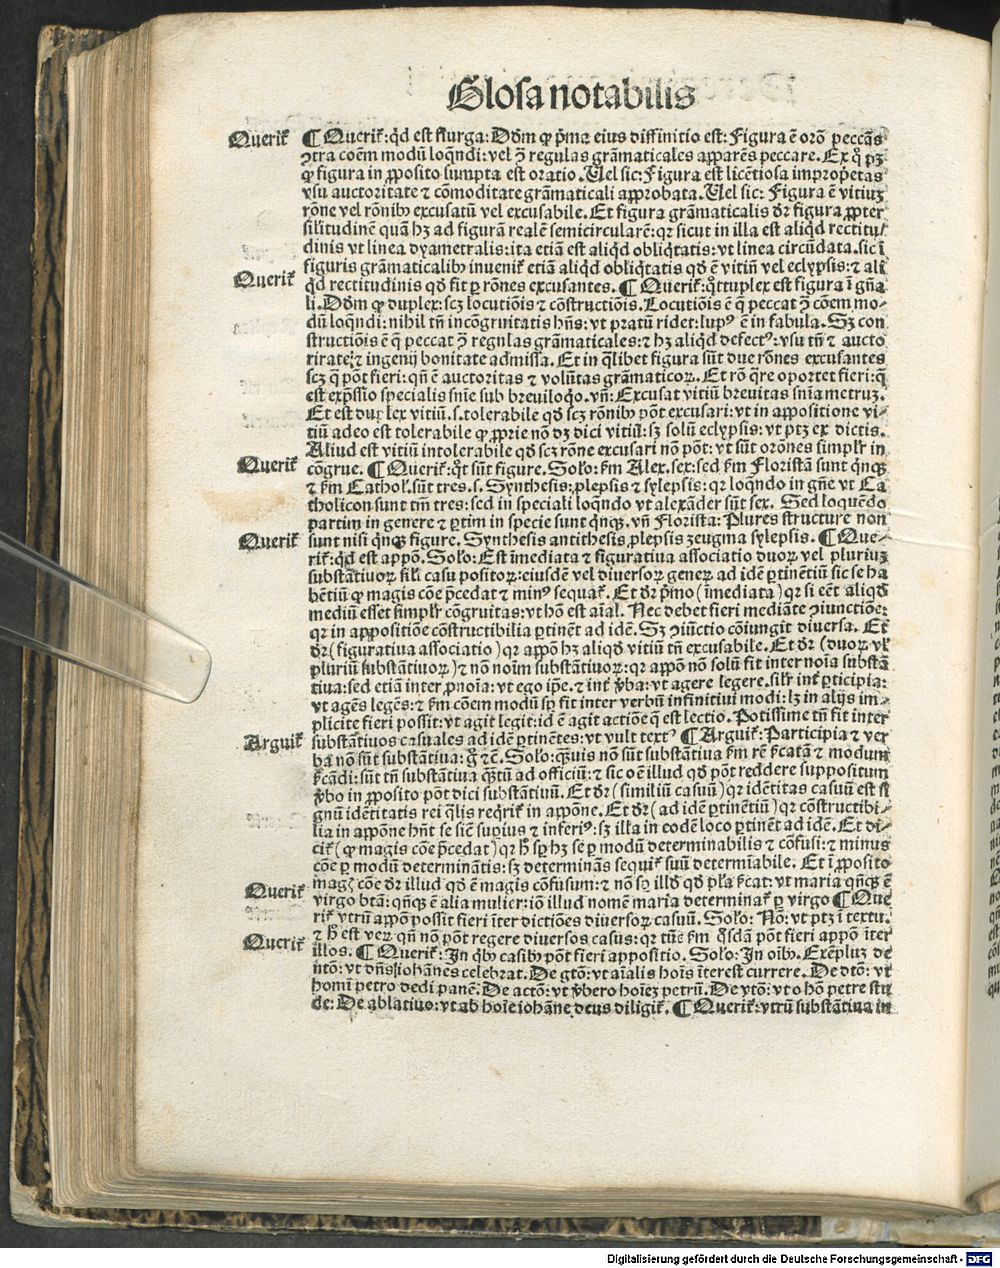 Glosa notabilis
Querit̃
¶ Querit̃: qd̃ est figurga: Dd̃m ꝙ p̃ma eius diffinitio est: Figura ẽ orõ peccãs
ↄtra coẽm modũ loq̃ndi: vel ↄ̃ regulas grãmaticales apparẽs peccare. Ex q̊ pꝫ
ꝙ figura in ꝓposito sumpta est oratio. Uel sic: Figura est licẽtiosa impropetas
vsu auctoritate ⁊ cõmoditate grãmaticali approbata. Uel sic: Figura ẽ vitiuꝫ
rõne vel rõnibꝫ excusatũ vel excusabile. Et figura grãmaticalis dr̃ figura ꝓpter
silitudinẽ quã hꝫ ad figurã realẽ semicircularẽ: qꝛ sicut in illa est aliqd̃ rectitu⸗
dinis vt linea dyametralis: ita etiã est aliqd̃ obliq̃tatis: vt linea circũdata. sic ĩ
Querit̃
figuris grãmaticalibꝫ inuenit̃ etiã aliqd̃ obliq̃tatis qd̃ ẽ vitiũ vel eclypsis: ⁊ ali
qd̃ rectitudinis qd̃ fit ꝑ rõnes excusantes. ¶ Querit̃: q̊tuplex est figura ĩ gñа
li. Dd̃m ꝙ duplex: scꝫ locutiõis ⁊ cõstructiõis. Locutiõis ẽ q̃ peccat ↄ̃ cõem mo⸗
dũ loq̃ndi: nihil tñ incõgruitatis hñs: vt pratũ ridet: lupꝰ ẽ in fabula. Sꝫ con
structiõis ẽ q̃ peccat ↄ̃ regulas grãmaticales: ⁊ hꝫ aliqd̃ defectꝰ: vsu tñ ⁊ aucto
ritate: ⁊ ingenij bonitate admissa. Et in q̃libet figura sũt due rõnes excusantes
scꝫ q̃ põt fieri: qñ ẽ auctoritas ⁊ volũtas grãmaticoꝝ. Et rõ q̃re oportet fieri: q̃
est exp̃ssio specialis snĩe sub breuiloqo. vñ: Excusat vitiũ breuitas snĩa metruꝫ.
Et est duplex vitiũ. s. tolerabile qd̃ scꝫ rõnibꝫ põt excusari: vt in appositione vi⸗
tiũ adeo est tolerabile ꝙ ꝓprie nõ dꝫ dici vitiũ: sꝫ solũ eclypsis: vt ptꝫ ex dictis.
Aliud est vitiũ intolerabile qd̃ scꝫ rõne excusari nõ põt: vt sũt orõnes simplr̃ in
Querit̃
cõgrue. ¶ Querit̃: q̊t sũt figure. Solo: km̃ Alex. sex: sed km̃ Floristã sunt q̃nqꝫ
⁊ km̃ Cathol̃. sũt tres. s. Synthesis: plepsis ⁊ sylepsis: qꝛ loqndo in gñe vt Ca
tholicon sunt tm̃ tres: sed in speciali loqndo vt alexãder sũt sex. Sed loquẽdo
partim in genere ⁊ ꝑtim in specie sunt q̃nqꝫ. vñ Florista: Plures structure non
Querit̃
sunt nisi q̃nqꝫ figure. Synthesis antithesis plepsis zeugma sylepsis. ¶ Que⸗
rit̃: qd̃ est appõ. Solo: Est ĩmediata ⁊ figuratiua associatio duoꝝ vel pluriuꝫ
substãtiuoꝝ sil̃i casu positoꝝ: eiusdẽ vel diuersoꝝ geneꝝ ad idẽ ꝑtinẽtiũ sic se ha
bẽtiũ ꝙ magis cõe p̃cedat ⁊ minꝰ sequat̃. Et dr̃ p̃mo (ĩmediata) qꝛ si eẽt aliqd̃
mediũ esset simplr̃ cõgruitas: vt hõ est aĩal. Nec debet fieri mediãte ↄiunctiõe:
qꝛ in appositiõe cõstructibilia ꝑtinẽt ad idẽ. Sꝫ ↄiũctio cõiungit diuersa. Et
dr̃ (figuratiua associatio) qꝛ appõ hꝫ aliqd̃ vitiũ tñ excusabile. Et dr̃ (duoꝝ vl̃
pluriũ substãtiuoꝝ) ⁊ nõ noĩm substãtiuoꝝ: qꝛ appõ nõ solũ fit inter noĩa substã
tiua: sed etiã inter ꝓnoĩa: vt ego ip̃e. ⁊ int̃ ỽba: vt agere legere. sil̃r int̃ ꝑticipia:
vt agẽs legẽs: ⁊ km̃ cõem modũ sp̃ fit inter verbũ infinitiui modi: lꝫ in alijs im⸗
plicite fieri possit: vt agit legit: id ẽ agit actiõe q̃ est lectio. Potissime tñ fit inter
Arguit̃
substãtiuos casuales ad idẽ ꝑtinẽtes: vt vult textꝰ ¶ Arguit̃: Participia ⁊ ver
ba nõ sũt substãtiua: g̊ ⁊c̃. Solo: q̃uis nõ sũt substãtiua km̃ rẽ ẜcatã ⁊ modum
ẜcãdi: sũt tñ substãtiua q̃tũ ad officiũ: ⁊ sic oẽ illud qd̃ põt reddere suppositum
ỽbo in ꝓposito põt dici substãtiuũ. Et dr̃ (similiũ casuũ) qꝛ idẽtitas casuũ est si
gnũ idẽtitatis rei q̃lis reqrit̃ in appõne. Et dr̃ (ad idẽ ꝑtinẽtiũ) qꝛ cõstructibi⸗
lia in appõne hñt se siẽ supius ⁊ inferiꝰ: sꝫ illa in eodẽ loco ꝑtinẽt ad idẽ. Et di⸗
cit̃ (ꝙ magis cõe p̃cedat) qꝛ h̃ sp̃ hꝫ se ꝑ modũ determinabilis ⁊ cõfusi: ⁊ minus
cõe ꝑ modũ determinãtis: sꝫ determinãs sequit̃ suũ determĩabile. Et ĩ ꝓposito
magꝭ cõe dr̃ illud qd̃ ẽ magis cõfusum: ⁊ nõ sp̃ illd̃ qd̃ pl̃a ẜcat: vt maria qñqꝫ ẽ
Querit̃
virgo btã: qñqꝫ ẽ alia mulier: iõ illud nomẽ maria determinat̃ ꝑ virgo ¶ Que
rit̃ vtrũ appõ possit fieri ĩter dictiões diuersoꝝ casuũ. Solo: Nõ: vt ptꝫ ĩ textu.
⁊ h̃ est veꝝ qñ nõ põt regere diuersos casus: qꝛ tũc km̃ q̃sdã põt fieri appõ ĩter
Querit̃
illos. ¶ Querit̃: In q̃bꝫ casibꝫ põt fieri appositio. Solo: In oĩbꝫ. Exẽpluꝫ de
ntõ: vt dñs iohãnes celebrat. De gtõ: vt aĩalis hoĩs ĩterest currere. De dtõ: vt
homĩ petro dedi panẽ. De actõ: vt ỽbero hoĩeꝫ petrũ. De vtõ: vt o hõ petre stu
de: De ablatiuo: vt ab hoĩe iohãne deus diligit̃. ¶ Querit̃: vtrũ substãtiua in
Digitalisierung gefördert durch die Deutsche Forschungsgemeinschaft - DFG